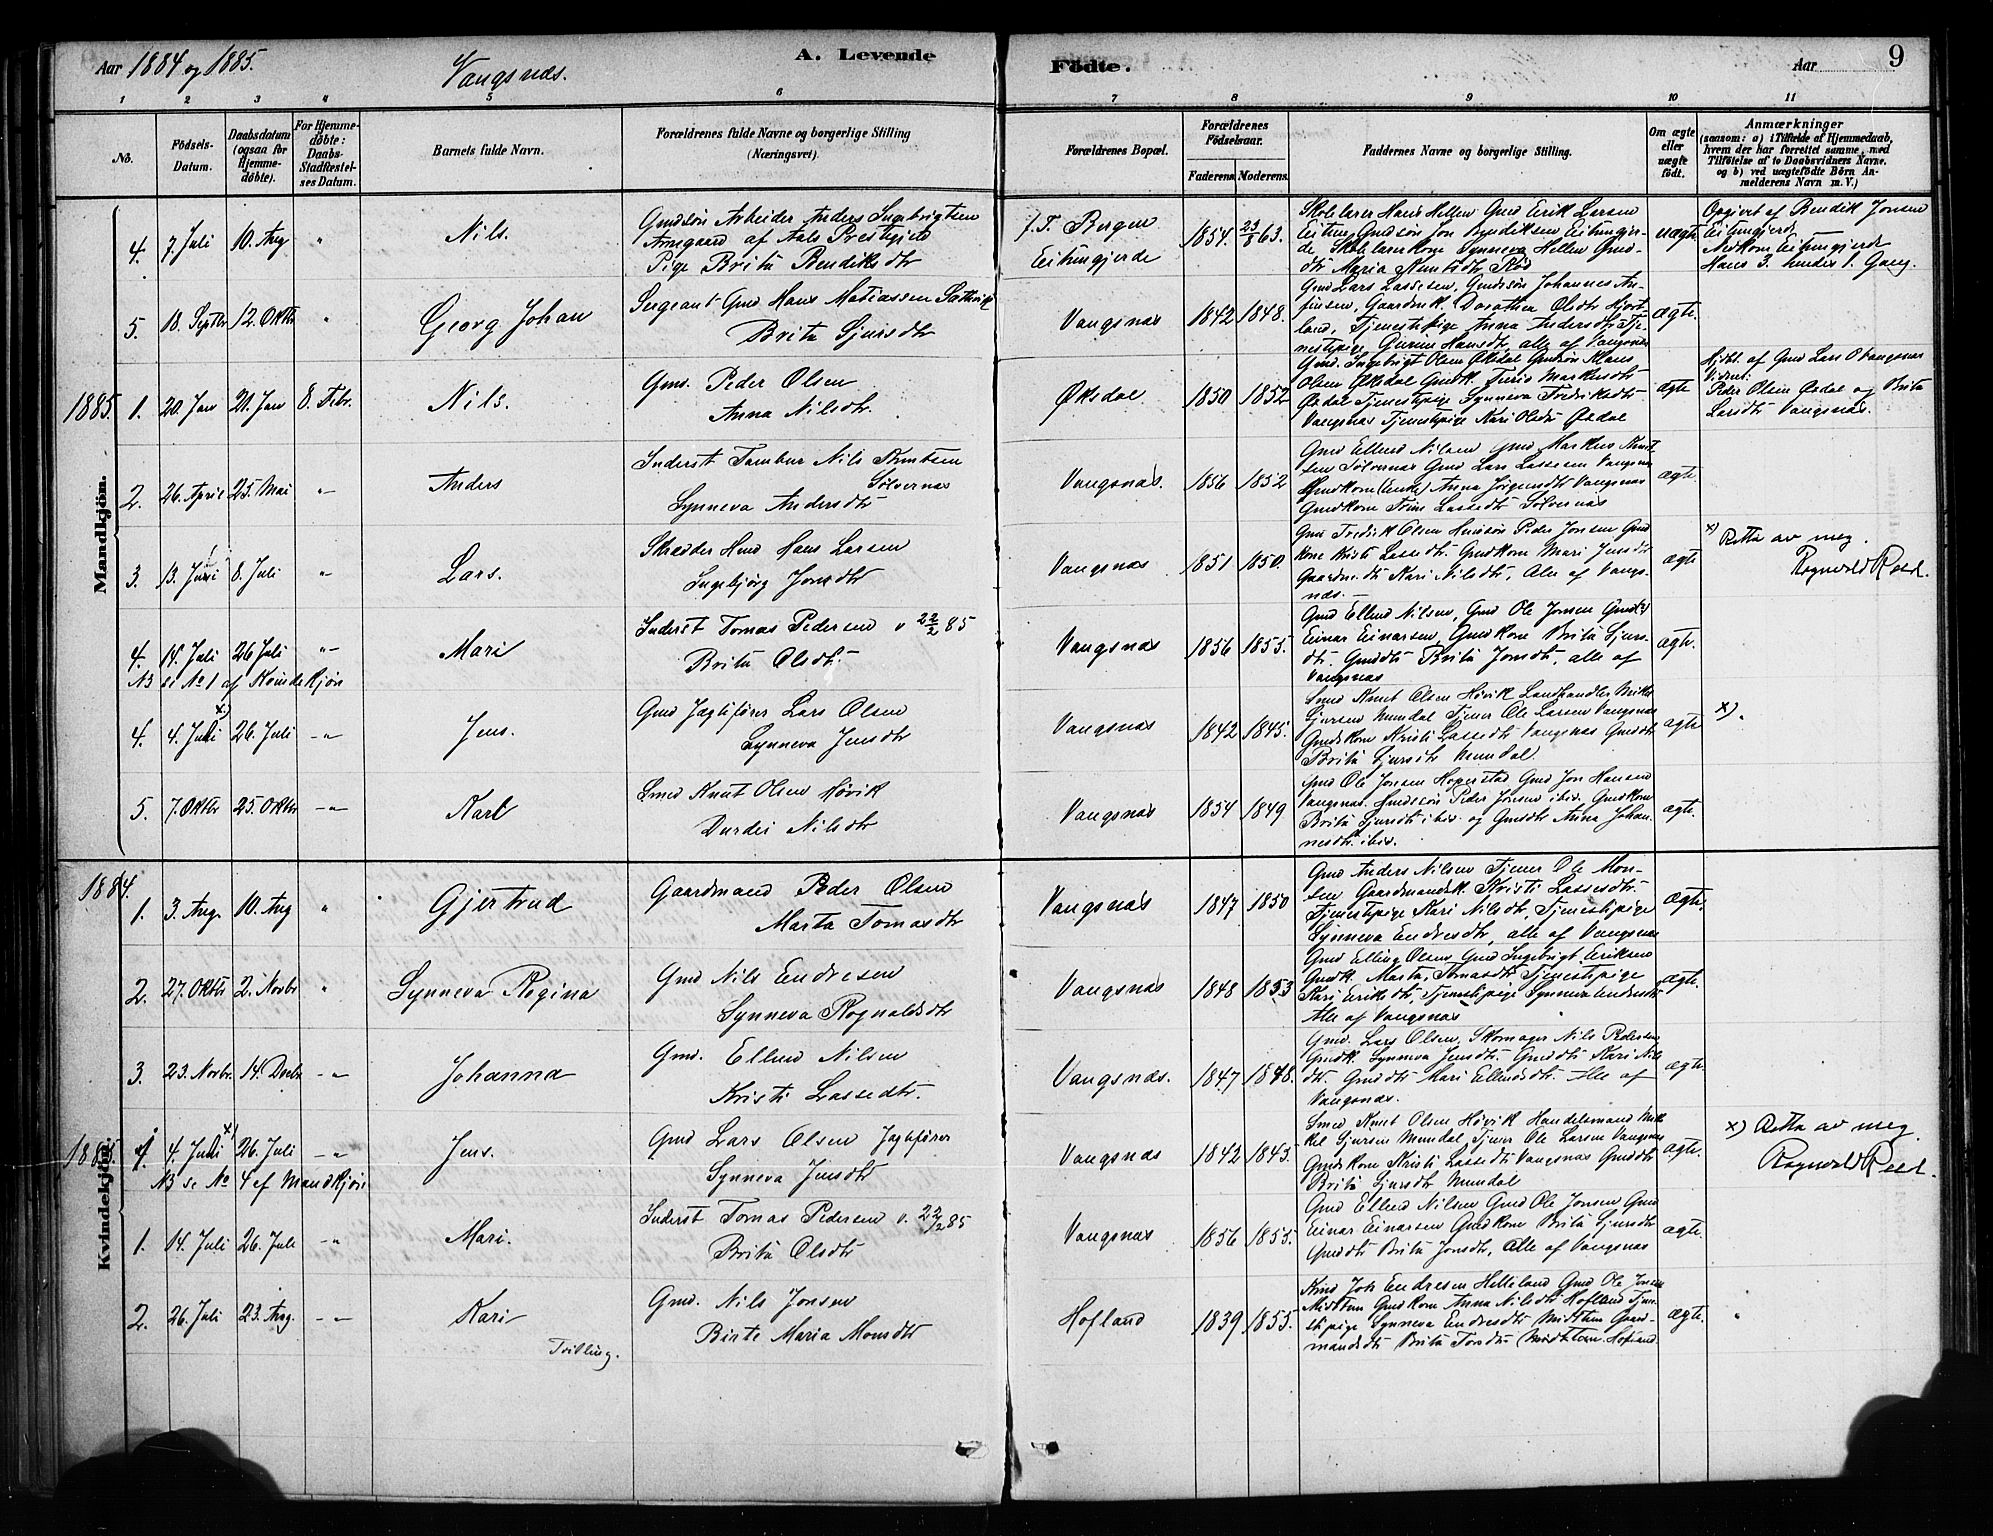 Aar 1884 og 1885. Vangsnæs. A. Levende Fødte. Aar 9
1 2 3 4 5 6 7 8 9 10 11
No. Fødsels-Datum. Daabsdatum (ogsaa for Hjemme-døbte). For Hjemme-døbte: Daabs-Stadfæstel-ses Datum. Barnets fulde Navn. Forældrenes fulde Navne og borgerlige Stilling (Næringsvei). Forældrenes Bopæl. Forældrenes Fødselsaar. Faderens. Moderens. Faddernes Navne og borgerlige Stilling. Om ægte eller uægte født. Anmærkninger (saasom: a) i Tilfælde af Hjemmedaab, hvem der har forrettet samme, med Tilføielse af to Daabsvidners Navne, og b) ved uægtefødte Børn An-melderens Navn m. V.)
Mandkjøn.
4. 7 Juli 10. Aug " Nils. Gmdsøn Arbeider Anders Ingebrigtsen
Pige Brita Bendiksdtr
f. T. Bergen
1854. 23/8 63.
Skolelærer Hans Hellen Gmd Erik Larsen
uægte
Opgivet af Bendik Jonsen
Hans 3. hendes 1. Gang.
5. 18. Septbr 12. Oktbr " Georg Johan Sergeant Gmd Hans Matiassen
Brita Sjursdtr
Vangsnæs 1842 1848.
Gmd Lars Lassesen, Gmdsøn Johannes An-
finsen, Gaardmk. Dorothea Olsdtr Hjort-
land, Tjenestepige Anna Andersdtr Tje-
nestepige Gurine Hansdtr, alle af Vangsnæs
ægte.
1885. 1. 20. Jan 21. Jan 8. Febr. Nils. Gmd. Peder Olsen
Anna Nilsdtr.
Øksdal 1850 1852
Gmd. Ingebrigt Olsen Øksdal Gmdsøn Klaus
Olsen Øksdal Gmdk. Turis Markusdtr
Øxdal Tjenestepige Synneva Fredriksdtr
Vangsnæs Tjenestepige Kari Olsdtr Øxdal
ægte
Hjdbt. af Gmd Lars O Vangsnæs
Vidner:
Peder Olsen Øxdal og Brita
Larsdtr Vangsnæs.
2. 26. April 25. Mai " Anders Inderst Tambur Nils Knutsen
Solvernæs
Synneva Andersdtr
Vangsnæs. 1856 1852
Gmd Ellend Nilsen Gmd Markus Knut-
sen Solvernæs Gmd Lars Lassesen Vangsnæs
Gmdkone (Enke) Anna Jørgensdtr Vangsnæs
Gmdkone Trine Lassedtr Solvernæs
ægte.
3. 13. Juni 8. Juli " Lars. Skrædder Hmd Hans Larsen
Ingebjørg Jonsdtr
Vangsnæs 1851 1850.
Gmd Fredrik Olsen Husmsøn Peder Jonsen Gmd
kone Kristi Lassedtr. Gmdkone Mari Jensdtr
Gaardmdtr Kari Nilsdtr, Alle af Vangs-
næs.
ægte
x) Retta av meg.
Rognvald Reed.
4. 14. Juli 26 Juli " Mari Inderst Tomas Pedersen v 22/2 85
Brita Olsdtr.
NB se No 1 af Kvindekjøn
Vangsnæs 1856 1855.
Gmd Ellend Nilsen, Gmd Ole Jonsen Gmd
Einar Einarsen, Gmdkone Brita Sjurs-
dtr. Gmddtr Brita Jonsdtr, alle af
Vangsnæs
ægte.
x)
4. 4. Juli 26. Juli " Jens. Gmd Jægtefører Lars Olsen
Synneva Jensdtr
Vangsnæs 1842 1845.
Smed Knut Olsen Høvik Landhandler Mikkel
Sjursen Mundal Tjener Ole Larsen Vangsnæs
Gmdskone Kristi Lassedtr Vangsnæs Gmddtr
Brita Sjursdtr Mundal
ægte
x).
5. 7. Oktbr 25. Oktbr " Karl Smed Knut Olsen Høvik
Durdei Nilsdtr
Vangsnæs 1854 1849
Gmd Ole Jonsen Hoperstad Gmd Jon Hansen
Vangsnæs. Gmdssøn Peder Jonsen ibid. Gmdkone
Brita Sjursdtr ibid. og Gmddtr Anna Johan-
nesdtr. ibid.
ægte.
Kvindekjøn.
1884. 1. 3. Aug. 10. Aug " Gjertrud Gaardmand Peder Olsen
Marta Tomasdtr
Vangsnæs 1847 1850
Gmd Anders Nilsen Tjener Ole Mon-
sen Gaardmandsk. Kristi Lassesdtr.
Tjenestepige Kari Nilsdtr, Tjenestepige
Synneva Endresdtr, alle af Vangsnæs
ægte.
2. 27. Oktbr 2. Novbr " Synneva Regina Gmd Nils Endresen
Synneva Rognaldsdtr
Vangsnæs 1848 1853
Gmd Elling Olsen Gmd Ingebrigt Eriksen
Gmdk. Marta Tomasdtr Tjenestepige
Kari Eriksdtr, Tjenestepige Synneva Endresdtr
Alle af Vangsnæs
ægte.
3. 23. Novbr. 14. Decbr " Johanna Gmd. Ellend Nilsen
Kristi Lassedtr.
Vangsnæs. 1847 1848.
Gmd. Lars Olsen, Skomager Nils Pedersen
Gmdk. Synneva Jensdtr. Gmddtr Kari Nils-
dtr. Gmddtr Mari Ellendsdtr. Alle af
Vangsnæs.
ægte.
1885. 4. 4. Juli x) 26. Juli " Jens. Gmd Lars Olsen Jægtefører
Synneva Jensdtr
NB se No 4 af Mandkjøn
Vangsnæs 1842 1845.
Smed Knut Olsen Høvik Handelsmand Mik-
kel Sjursen Mundal, Tjener Ole Larsen Vangsnæs
Gmdskone Kristi Lassedtr Vangsnæs Gmddtr
Brita Sjursdtr Mundal
ægte.
x) Retta av meg.
Rognvald Reed.
1. 14. Juli 26. Juli " Mari. Inderst Tomas Pedersen v. 22/2 85
Brita Olsdtr
Vangsnæs 1856 1855.
Gmd Ellend Nilsen Gmd Ole Jonsen Gmd
Einar Einarsen Gmdkone Brita Sjursdtr
Gmddtr Brita Jonsdtr, alle af Vangsnæs
ægte.
2. 26. Juli 23. Aug. " Kari Gmd. Nils Jonsen
Birte Maria Monsdtr
Tvilling.
Hofland 1839 1855.
Joh Endresen Helleland Gmd Ole Jonsen
Midttun Gmdkone Anna Nilsdtr Hofland Tjene-
stepige Synneva Endresdtr Midttun Gaard-
mandsdtr Brita Midttun Hofland
ægte.